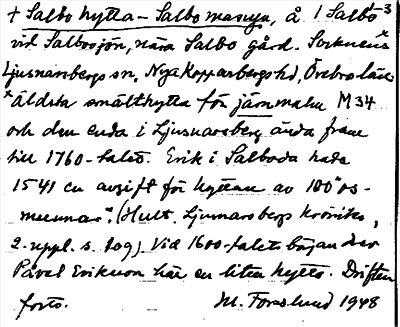 + Salbo hytta – Salbo masugn, å 1 Salbo 1-3
vid Salbosjön, nära Salbo gård. Socknens x
Ljusnarsbergs sn, Nya Kopparbergs hd, Örebro län
x äldsta smälthytta för järnmalm M34
och den enda i Ljusnarsberg ända fram
till 1760-talet. Erik i Salboda hade
1541 en avgift för hyttan av 100 "os-
munnar". (Hult. Ljusnarsbergs krönika,
2. uppl. s. 209). Vid 1600-talets början drev
Påvel Eriksson här en liten hytta. Driften
forts. M. Forslund 1948